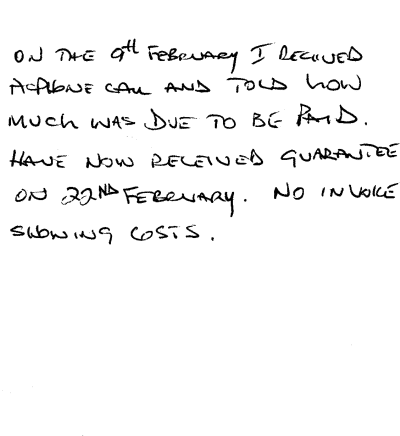 ON THE 9th FEBRUARY I RECEIVED
A PHONE CALL AND TOLD HOW
MUCH WAS DUE TO BE PAID.
HAVE NOW RECEIVED GUARANTEE
ON 22ND FEBRUARY. NO INVOICE
SHOWING COSTS.